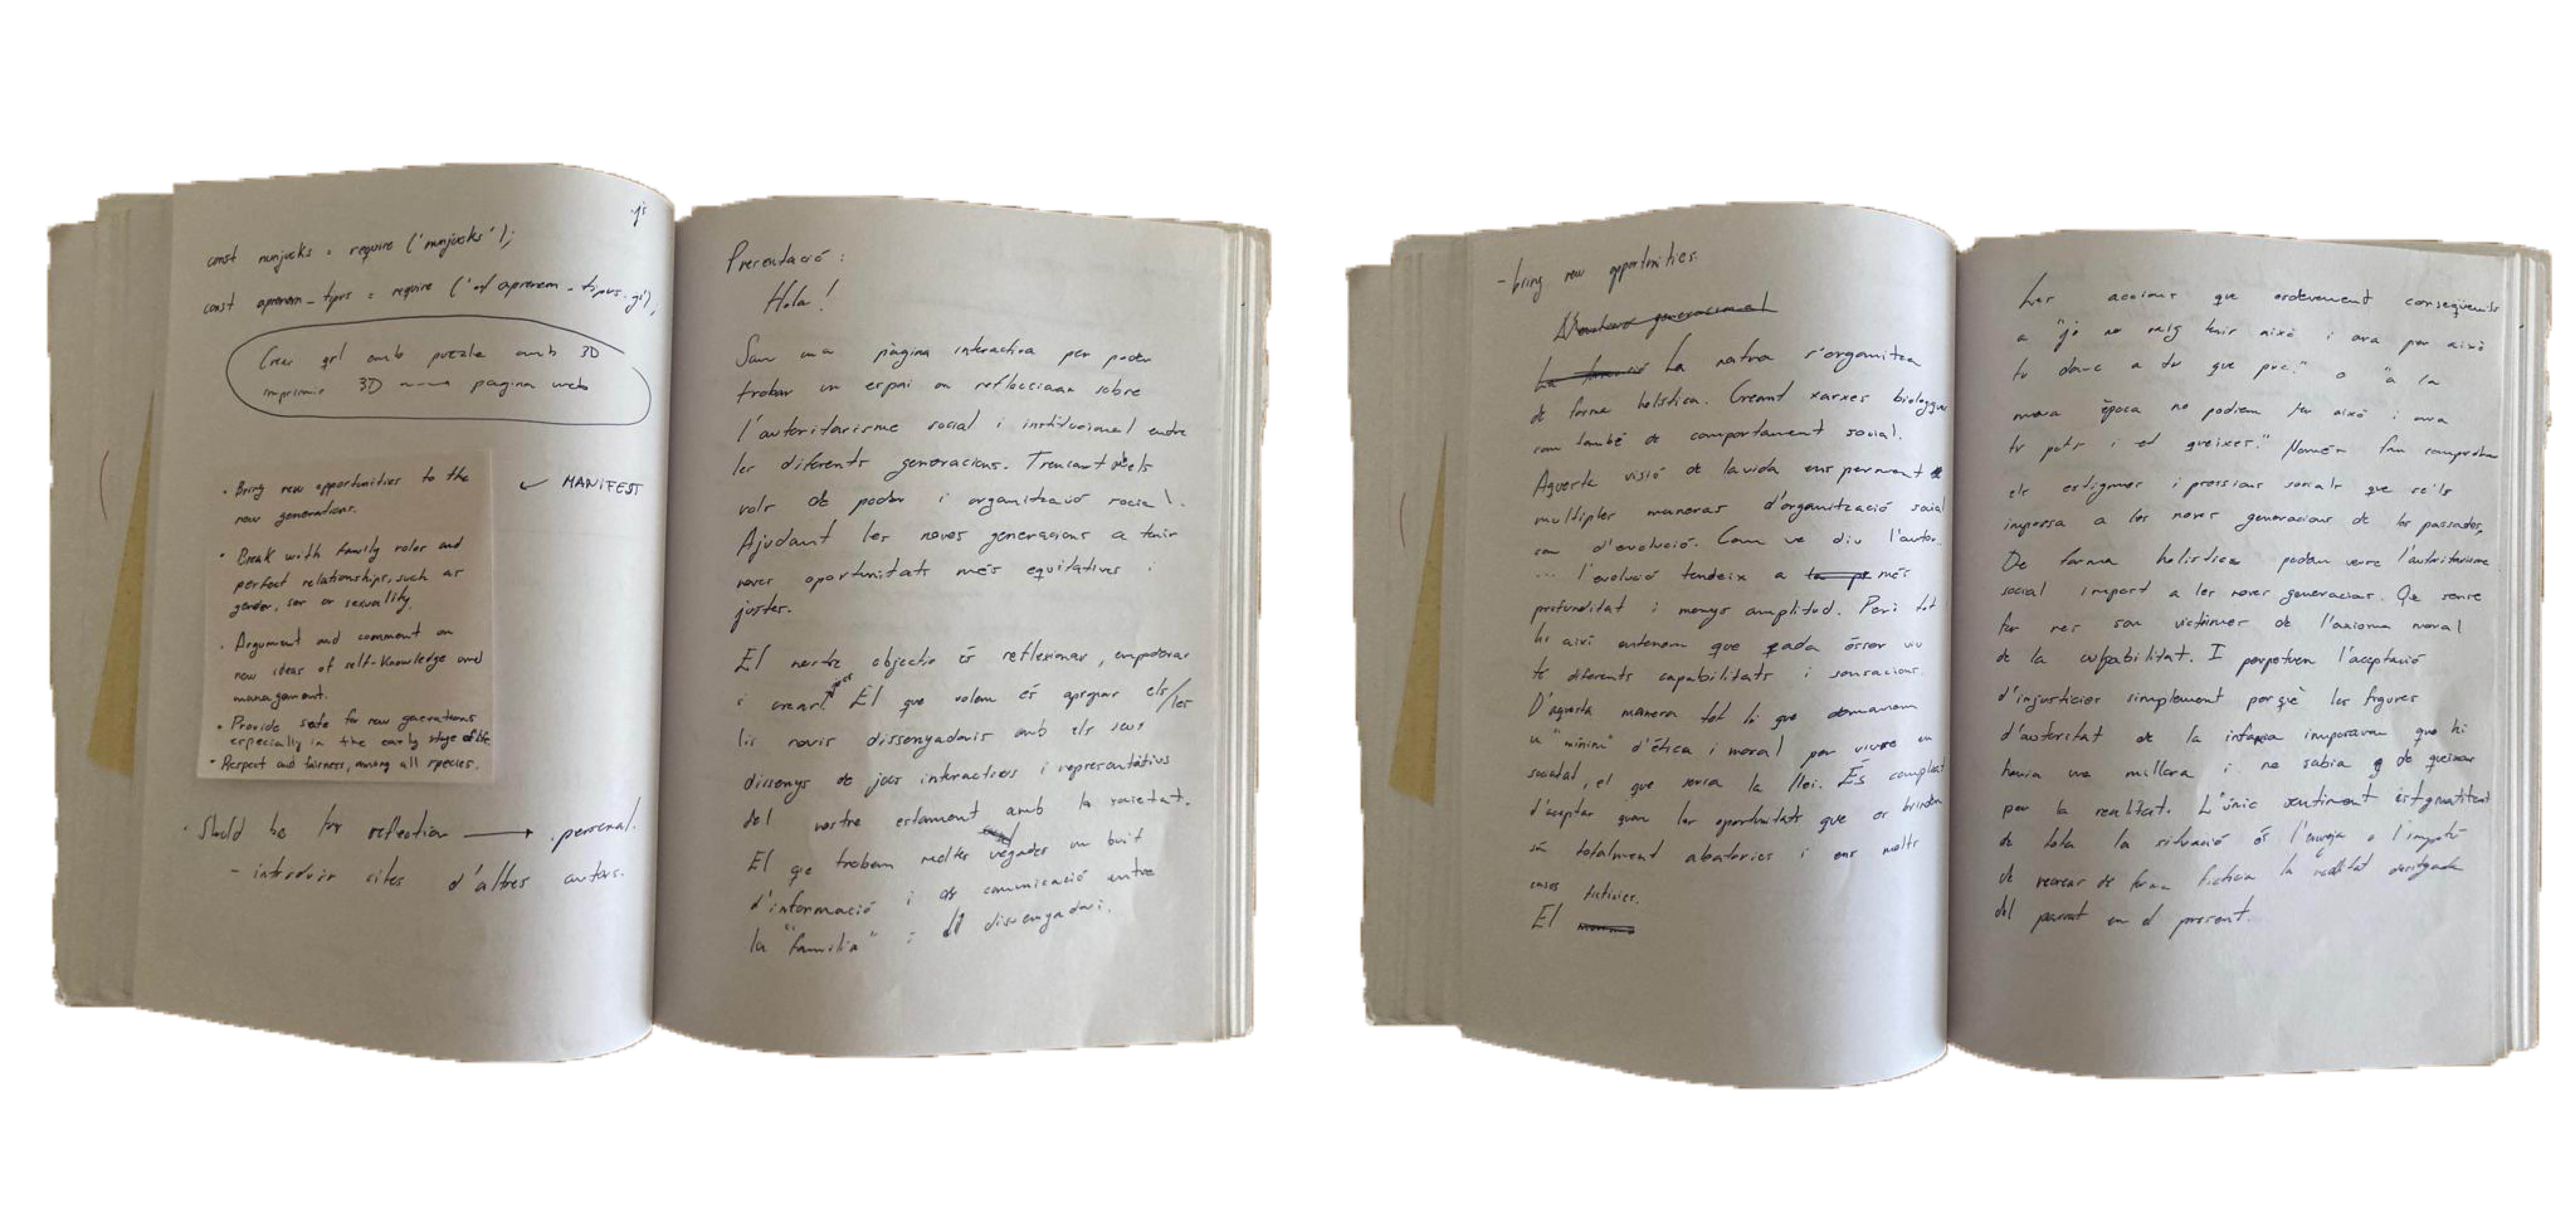 .js
const nunjucks = require ('nunjucks');
const aprenem_tipus = require ('aprenem_tipus.js');
Crear amb puzzle amb 3D
imprimir 3D pagina web
• Bring new opportunities to the
new generations.
• Break with family roles and
perfect relationships, such as
gender, sex or sexuality.
• Argument and comment on
new ideas of self-knowledge and
management.
• Provide safe for new generations
especially in the early stage of life
• Respect and fairness, among all species.
MANIFEST
• Should be for reflection → personal.
- introduir cites d'altres autors.
Presentació:
Hola!
Som una pàgina interactiva per poder
trobar un espai on refleccionar sobre
l'autoritarisme social i institucional entre
les diferents generacions. Trencant els
rols de poder i organització social.
Ajudant les noves generacions a tenir
noves oportunitats més equitatives i
justes.
El nostre objectiu és reflexionar, empoderar
i crear! El que volem és apropar els/les
lis novis dissenyadoris amb els seus
dissenys de jocs interactius i representatius
del nostre estament amb la societat.
El que trobem moltes vegades un buit
d'informació i de comunicació entre
la "familia" i dissenyadori.
- bring new opportunities.
La natra s'organitza
de forma holistica. Creant xarxes biologques
com també de comportament social.
Aquesta visió de la vida ens permet
multiples maneres d'organització social
com d'evolució. Com ve diu l'autor..
... l'evolució tendeix a més
profunditat i menys amplitud. Però tot
hi així entenem que cada ésser viu
té diferents capabilitats i sensacions.
D'aquesta manera tot lo que demanem
"minim" d'ètica i moral per viure en
societat, el que seria la llei. És complicat
d'aceptar quan les oportunitats que es brinden
són totalment aleatories i ens molts
casos ficticies.
El
Les accions que conseqüencits
a "jo no vaig tenir això i ara per això
tu a tu que puc." o "a la
meva època no podiem fer això i ara
tu pots i et queixes." Només fan comprobar
els estigmes i pressions socials que se'ls
imposa a les noves generacions de les passades,
De forma holistica podem veure l'autoritarisme
social impost a les noves generacions. Que sense
fer res son victimes de l'axioma moral
de la culpabilitat. I perpetuen l'aceptació
d'injusticies simplement perquè les figures
d'autoritat de la infancia imposaven que hi
havia una millora i no sabia de queixar
per la realitat. L'únic sentiment estigmatitzat
de tota la situació és l'enveja o l'impotè
de recrear de forma ficticia la realitat desitjada
del passat en el present.